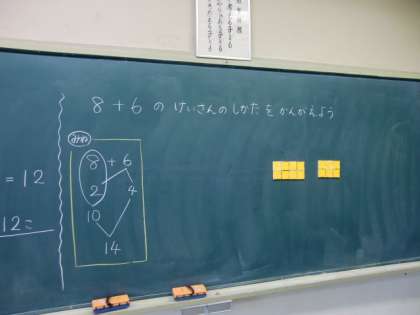 8+6のけいさんのしかたをかんがえよう
=12
12=
みほ
8+6
2 4
10
14